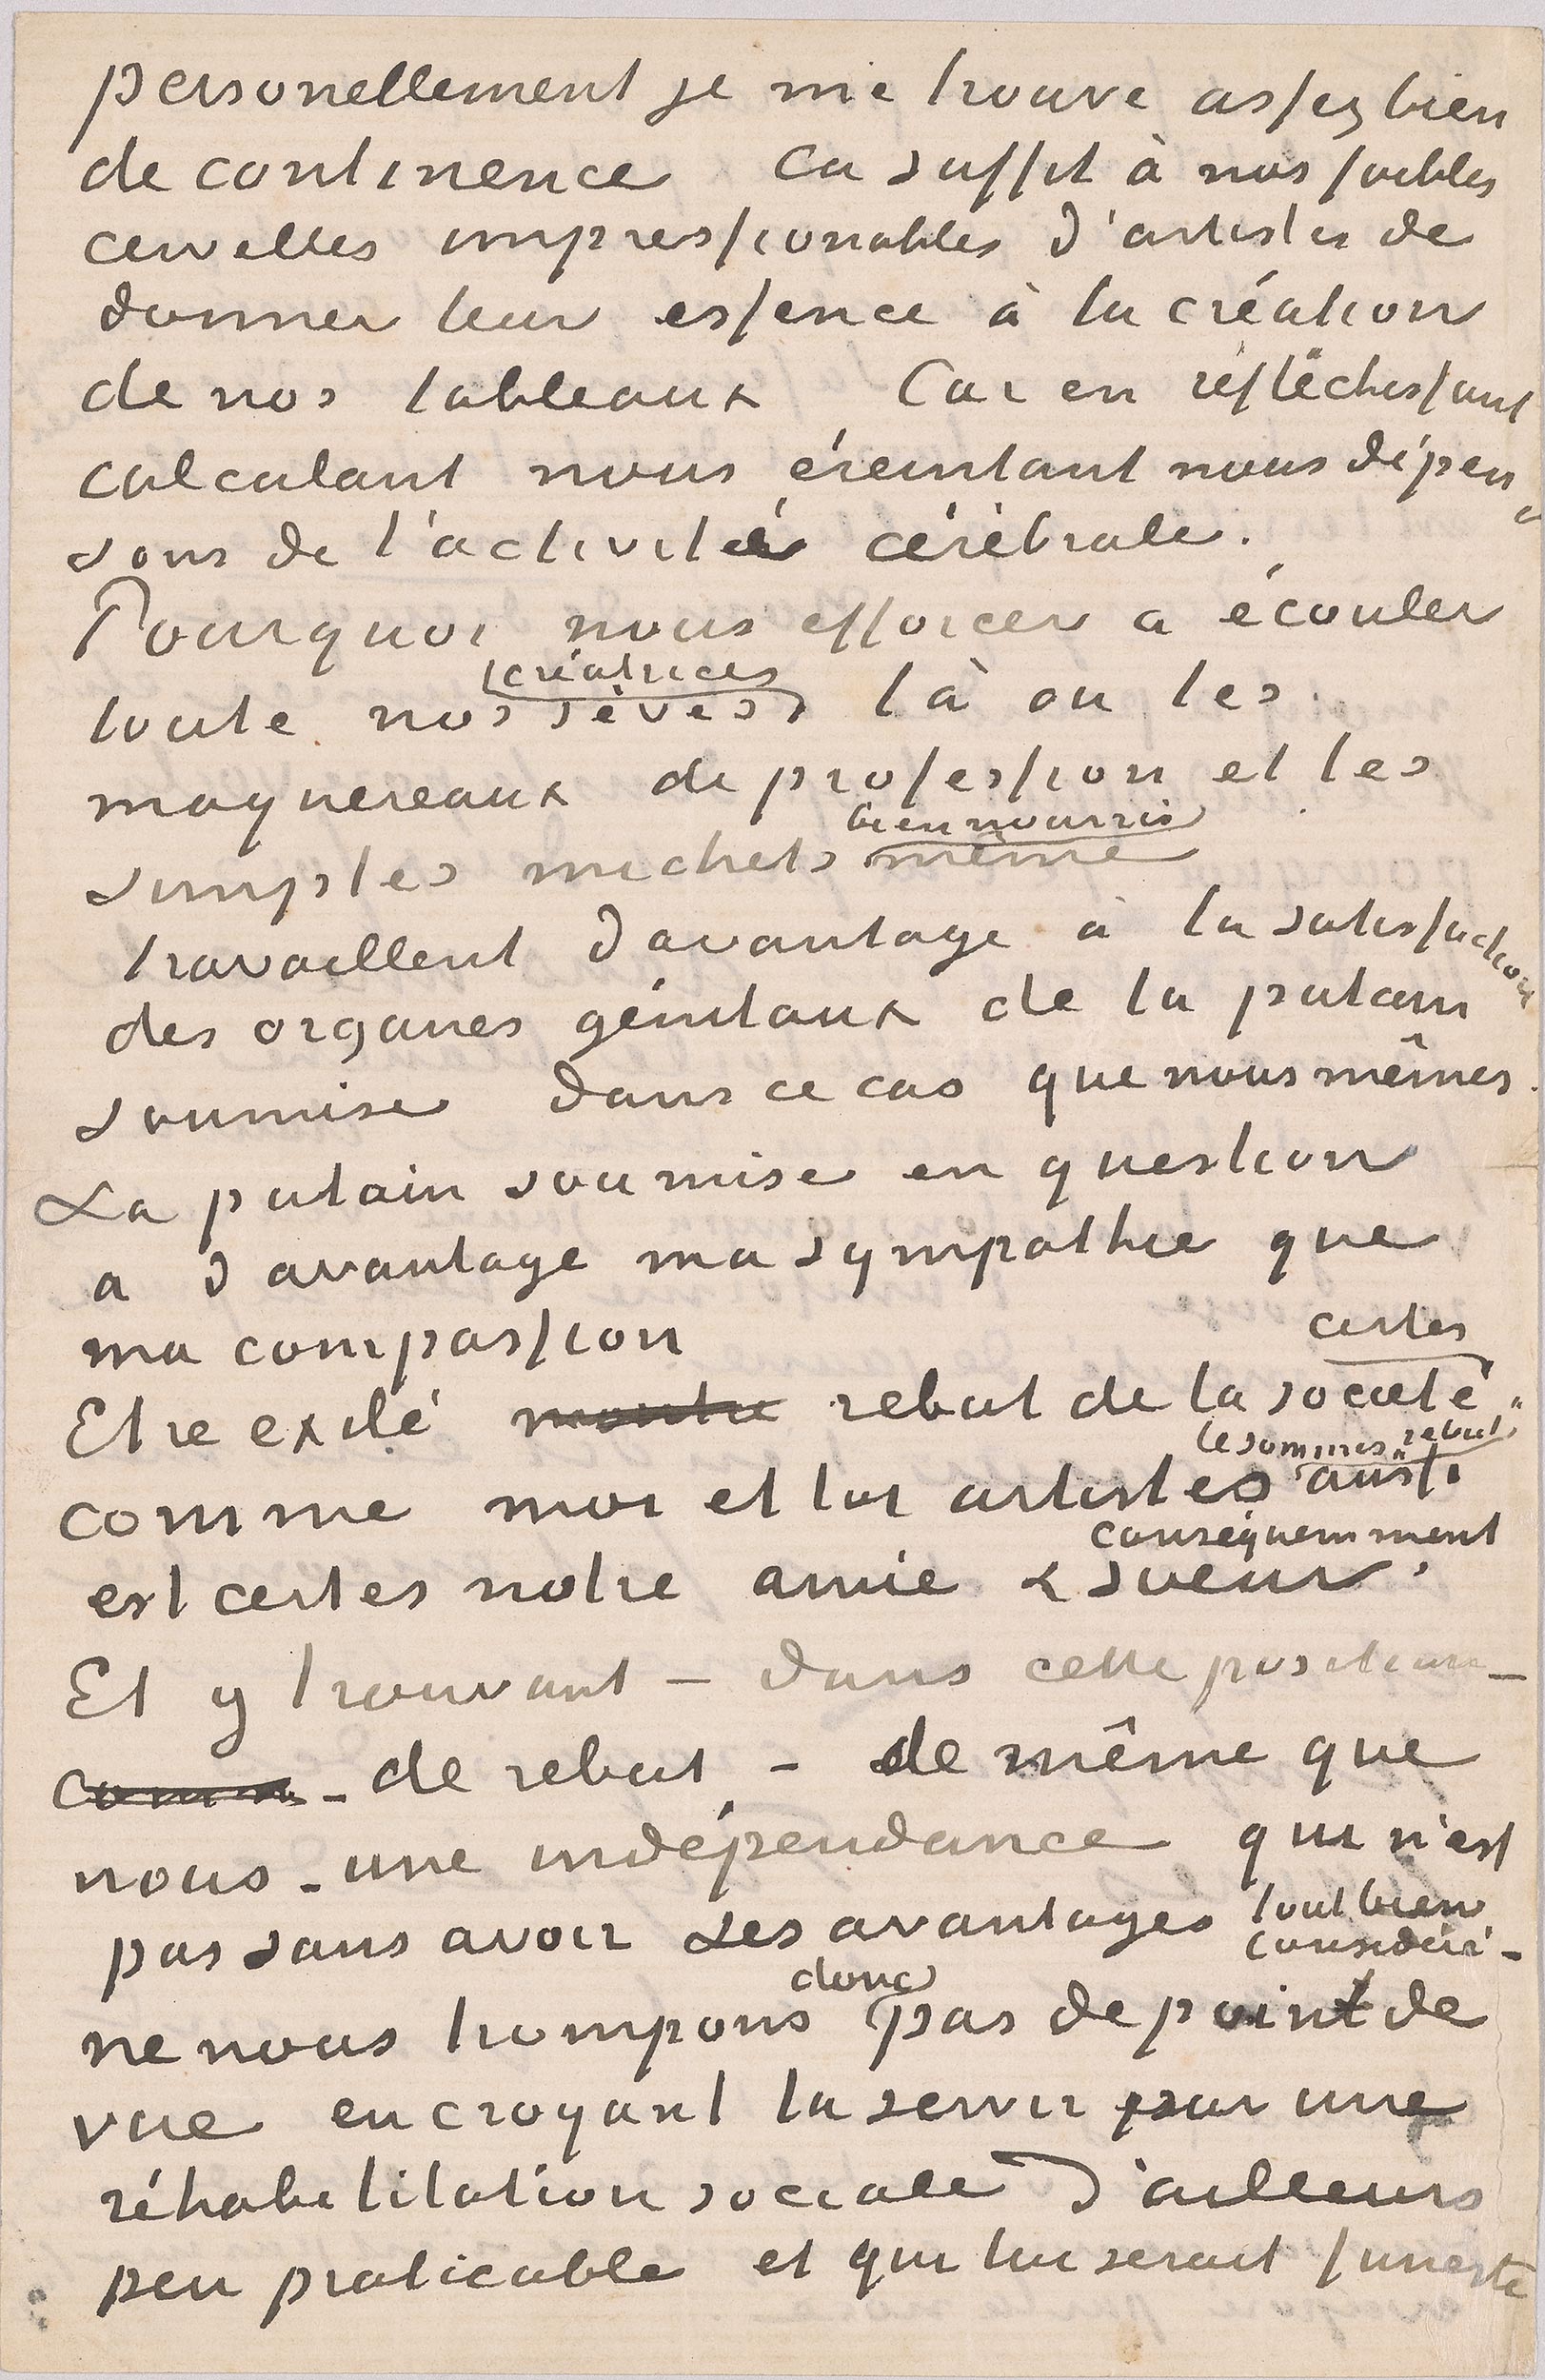 personellement je me trouve assez bien
de continence ca suffit à nos faibles
cervelles impressionables d'artistes de
donner leur essence à la création
de nos tableaux Car en réfléchissant
calculant nous éreintant nous dépen
sons de l'activité cérébrale.
Pourquoi nous efforcer a écouler
créatrices
toute nos sèves là ou les
maquereaux de profession et les
bien nourris
simples michets même
travaillent davantage à la satisfaction
des organes génitaux de la putain
soumise dans ce cas que nous mêmes.
La putain soumise en question
a davantage ma sympathie que
ma compassion
certes
Etre exilé rebut de la société
le sommes "rebut"
comme moi et toi artistes aussi
conséquemment
est certes notre amie & soeur.
Et y trouvant – dans cette position –
comm - de rebut - de même que
nous - une indépendance qui n'est
pas sans avoir ses avantages tout bien
considéré -
donc
ne nous trompons pas de point de
vue en croyant la servir par une
réhabilitation sociale d'ailleurs
peu praticable et qui lui serait funeste